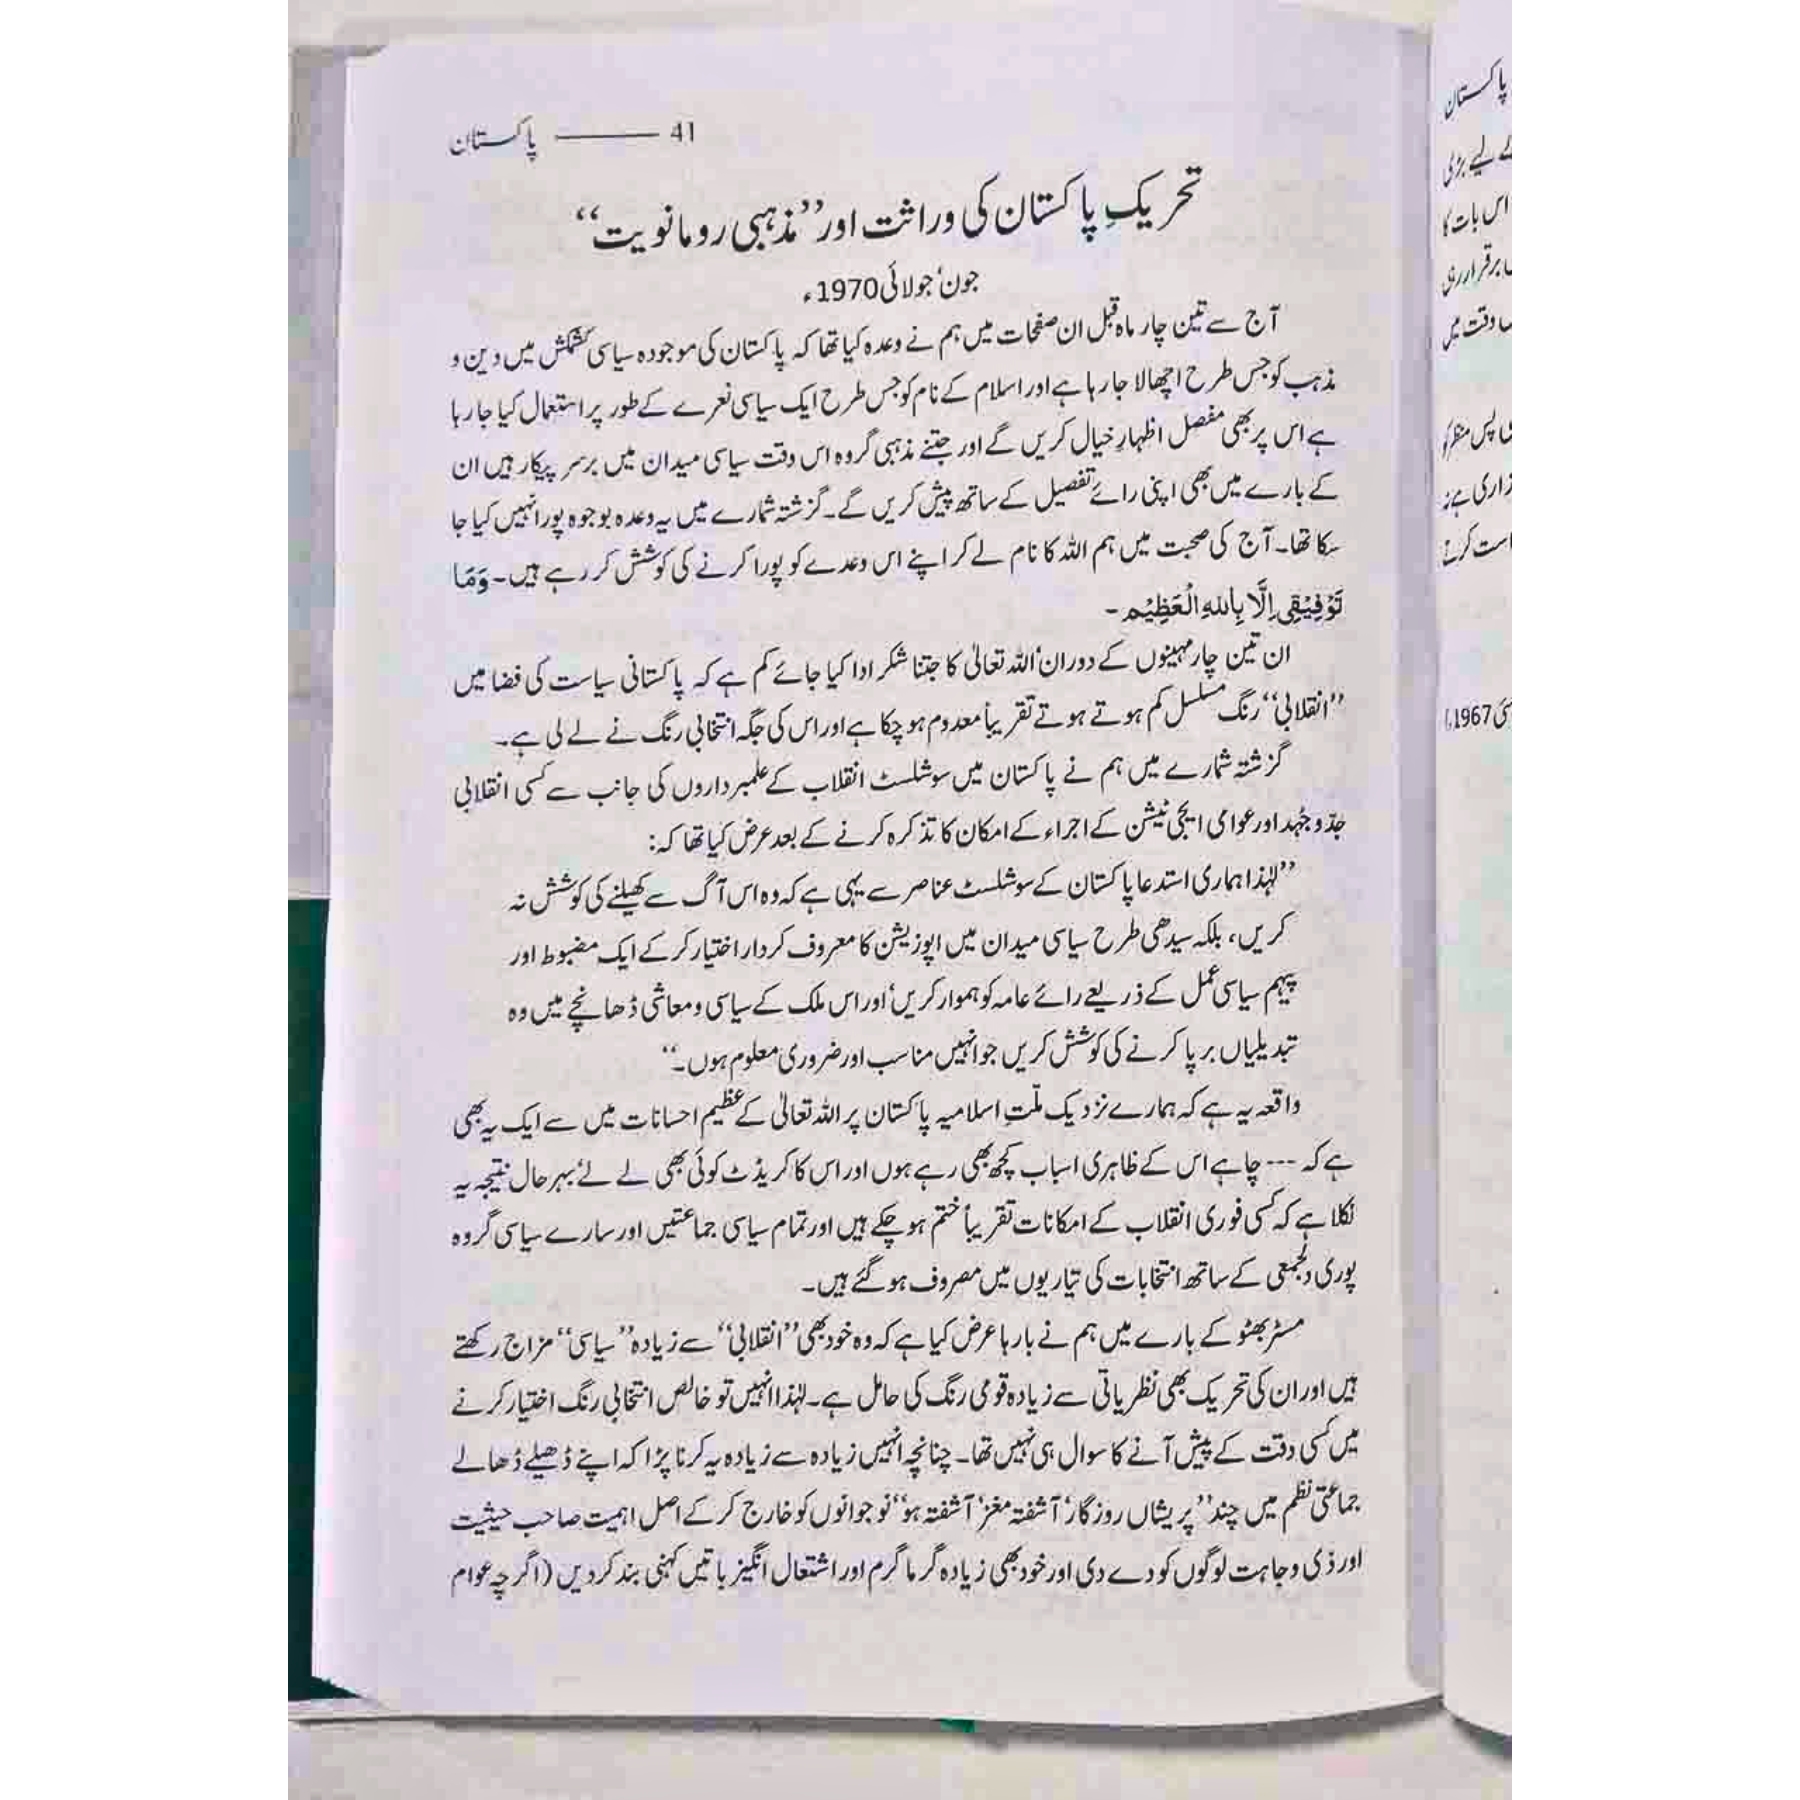 پاکستان ——— 41
تحریکِ پاکستان کی وراثت اور ”مذہبی رومانویت“
جون‘ جولائی 1970ء
آج سے تین چار ماہ قبل ان صفحات میں ہم نے وعدہ کیا تھا کہ پاکستان کی موجودہ سیاسی کشمکش میں دین و
مذہب کو جس طرح اچھالا جا رہا ہے اور اسلام کے نام کو جس طرح ایک سیاسی نعرے کے طور پر استعمال کیا جا رہا
ہے اس پر بھی مفصل اظہارِ خیال کریں گے اور جتنے مذہبی گروہ اس وقت سیاسی میدان میں برسر پیکار ہیں ان
کے بارے میں بھی اپنی رائے تفصیل کے ساتھ پیش کریں گے۔ گزشتہ شمارے میں یہ وعدہ بوجوہ پورا نہیں کیا جا
سکا تھا۔ آج کی صحبت میں ہم اللہ کا نام لے کر اپنے اس وعدے کو پورا کرنے کی کوشش کر رہے ہیں۔ وَمَا
تَوْفِیْقِی اِلَّا بِاللہِ الْعَظِیْم ۔
ان تین چار مہینوں کے دوران‘ اللہ تعالیٰ کا جتنا شکر ادا کیا جائے کم ہے کہ پاکستانی سیاست کی فضا میں
”انقلابی“ رنگ مسلسل کم ہوتے ہوتے تقریباً معدوم ہو چکا ہے اور اس کی جگہ انتخابی رنگ نے لے لی ہے۔
گزشتہ شمارے میں ہم نے پاکستان میں سوشلسٹ انقلاب کے علمبرداروں کی جانب سے کسی انقلابی
جدّوجُہد اور عوامی ایجی ٹیشن کے اجراء کے امکان کا تذکرہ کرنے کے بعد عرض کیا تھا کہ:
”لہٰذا ہماری استدعا پاکستان کے سوشلسٹ عناصر سے یہی ہے کہ وہ اس آگ سے کھیلنے کی کوشش نہ
کریں، بلکہ سیدھی طرح سیاسی میدان میں اپوزیشن کا معروف کردار اختیار کر کے ایک مضبوط اور
پیہم سیاسی عمل کے ذریعے رائے عامہ کو ہموار کریں‘ اور اس ملک کے سیاسی و معاشی ڈھانچے میں وہ
تبدیلیاں برپا کرنے کی کوشش کریں جو انہیں مناسب اور ضروری معلوم ہوں۔“
واقعہ یہ ہے کہ ہمارے نزدیک ملّتِ اسلامیہ پاکستان پر اللہ تعالیٰ کے عظیم احسانات میں سے ایک یہ بھی
ہے کہ --- چاہے اس کے ظاہری اسباب کچھ بھی رہے ہوں اور اس کا کریڈٹ کوئی بھی لے لے‘ بہر حال نتیجہ یہ
نکلا ہے کہ کسی فوری انقلاب کے امکانات تقریباً ختم ہو چکے ہیں اور تمام سیاسی جماعتیں اور سارے سیاسی گروہ
پوری دلجمعی کے ساتھ انتخابات کی تیاریوں میں مصروف ہو گئے ہیں۔
مسٹر بھٹو کے بارے میں ہم نے بارہا عرض کیا ہے کہ وہ خود بھی ”انقلابی“ سے زیادہ ”سیاسی“ مزاج رکھتے
ہیں اور ان کی تحریک بھی نظریاتی سے زیادہ قومی رنگ کی حامل ہے۔ لہٰذا انہیں تو خالص انتخابی رنگ اختیار کرنے
میں کسی دقت کے پیش آنے کا سوال ہی نہیں تھا۔ چنانچہ انہیں زیادہ سے زیادہ یہ کرنا پڑا کہ اپنے ڈھیلے ڈھالے
جماعتی نظم میں چند ”پریشاں روزگار‘ آشفتہ مغز‘ آشفتہ ہو“ نوجوانوں کو خارج کر کے اصل اہمیت صاحب حیثیت
اور ذی وجاہت لوگوں کو دے دی اور خود بھی زیادہ گرما گرم اور اشتعال انگیز باتیں کہنی بند کر دیں (اگرچہ عوام
پاکستان
کے لیے بڑی
اس بات کا
برقرار رہی
وقت میں
پس منظر کو
1967ء)